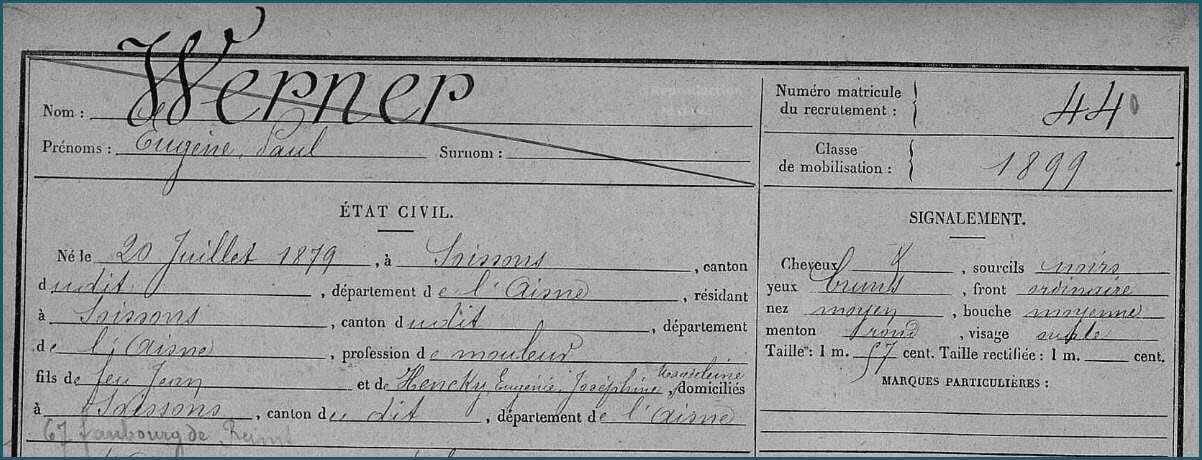 Werner
Nom :
Prénoms : Eugène, Paul Surnom :
Numéro matricule
du recrutement : 440
Classe
de mobilisation : 1899
ÉTAT CIVIL.
Né le 20 Juillet 1879, à Soissons, canton
dudit, département de l'Aisne, résidant
à Soissons, canton dudit, département
de l'Aisne, profession de mouleur
fils de feu Jean et de Hencky, Eugénie, Joséphine Magdeleine, domiciliés
à Soissons, canton du dit, département de l'Aisne
67 faubourg de Reims
SIGNALEMENT.
Cheveux &, sourcils noirs
yeux bruns, front ordinaire
nez moyen, bouche moyenne
menton rond, visage ovale
Taille : 1 m. 57 cent. Taille rectifiée : 1 m. cent.
MARQUES PARTICULIÈRES :
Reproduction